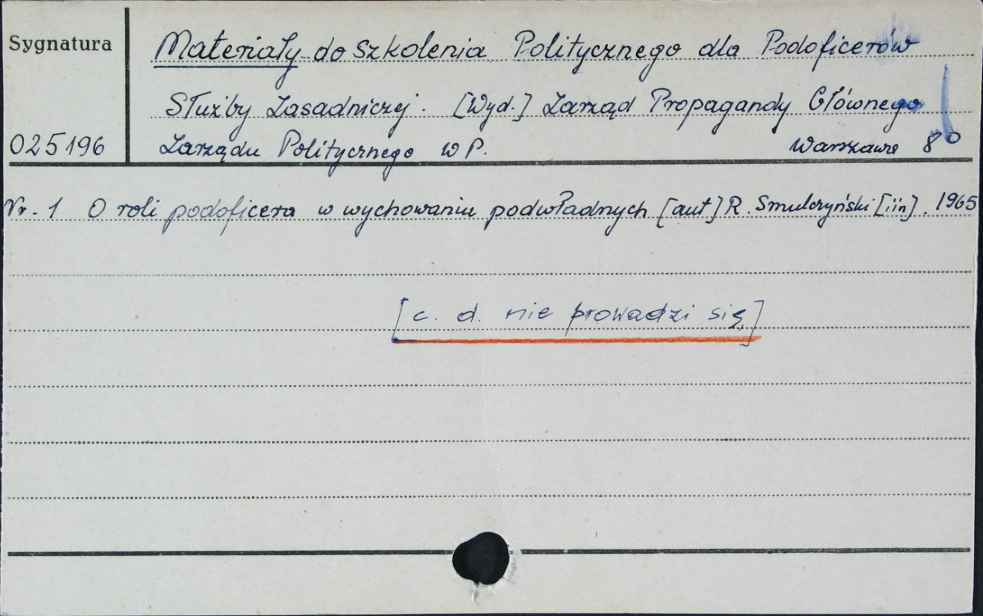 Sygnatura
Materiały do szkolenia Politycznego dla Podoficerów
Służby Zasadniczej. [Wyd.] Zarząd Propagandy Głównego
025196 Zarządu Politycznego WP. Warszawa 8°
Nr. 1 O roli podoficera w wychowaniu podwładnych [aut] R. Smulczyński [i in]. 1965
[c. d. nie prowadzi się]